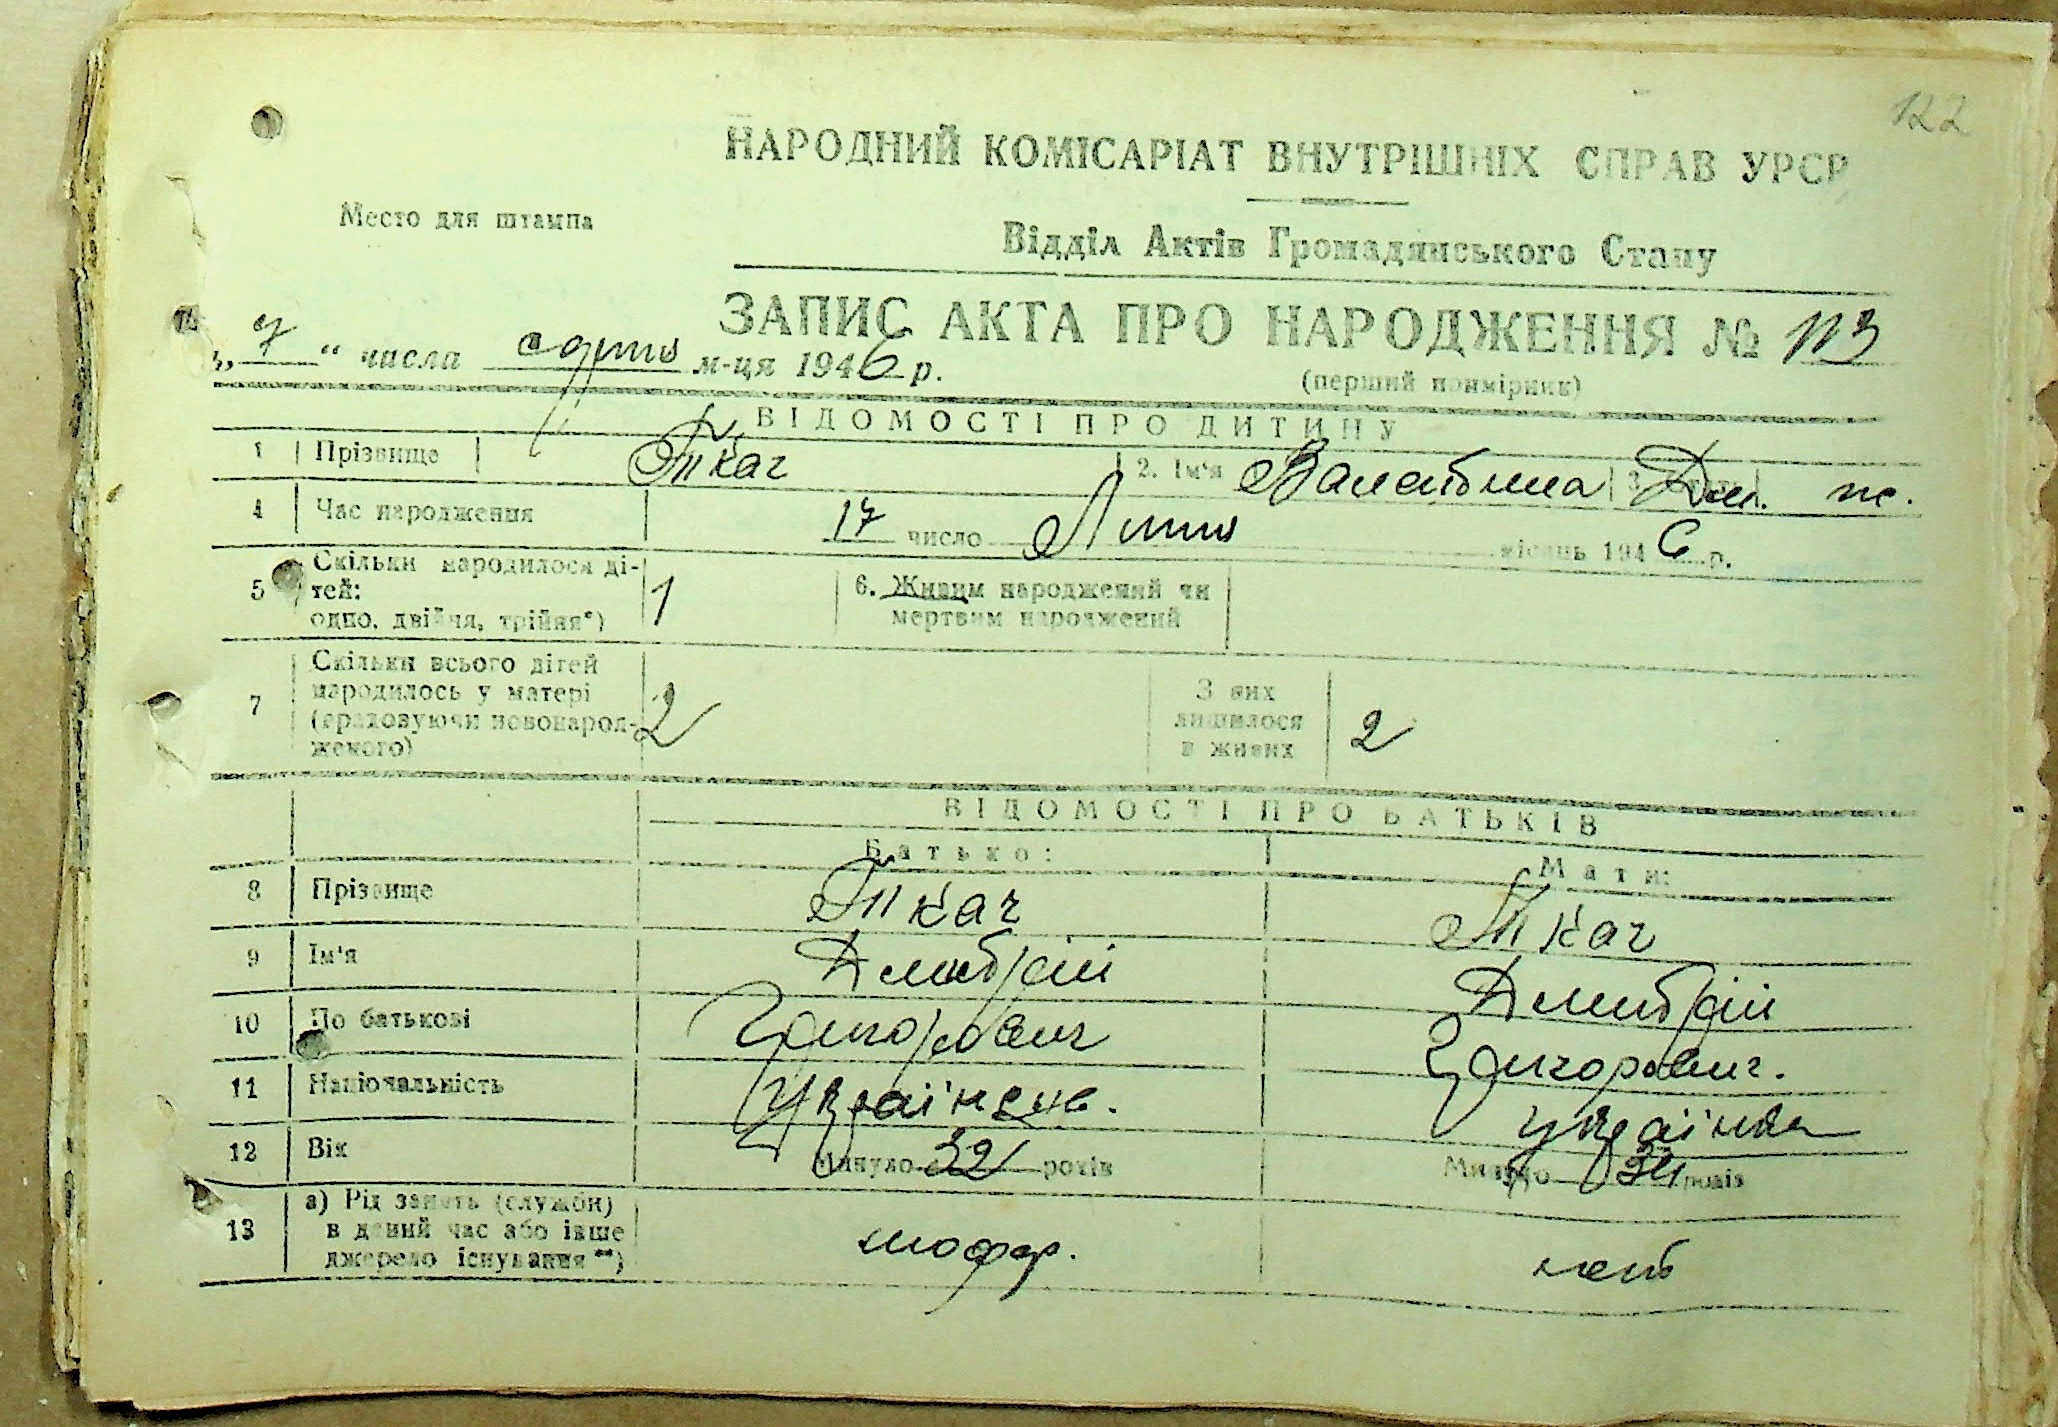 122
НАРОДНИЙ КОМІСАРІАТ ВНУТРІШНІХ СПРАВ УРСР
Место для штампа
Відділ Актів Громадянського Стану
ЗАПИС АКТА ПРО НАРОДЖЕННЯ № 113
„ 7 “ числа м-ця 1946 р.
(перший примірник)
ВІДОМОСТІ ПРО ДИТИНУ
1 Прізвище Ткач 2. Ім'я Валентина 3. Стать ж.
4 Час народження 17 число Лютого місяць 1946 р.
5 Скільки народилося ді-
тей:
одно, двійня, трійня*) 1
6. Живим народжений чи
мертвим народжений
7 Скільки всього дітей
народилось у матері
(враховуючи новонарод-
женого) 2
З них
лишилося
в живих 2
ВІДОМОСТІ ПРО БАТЬКІВ
Батько: Мати:
8 Прізвище Ткач Ткач
9 Ім'я Дмитрій Дмитрій
10 По батькові Григорович Григорович.
11 Національність Українець. Українка
12 Вік Минуло 32 років Минуло 34 років
13 а) Рід занять (служби)
в даний час або інше
джерело існування **) шофер.